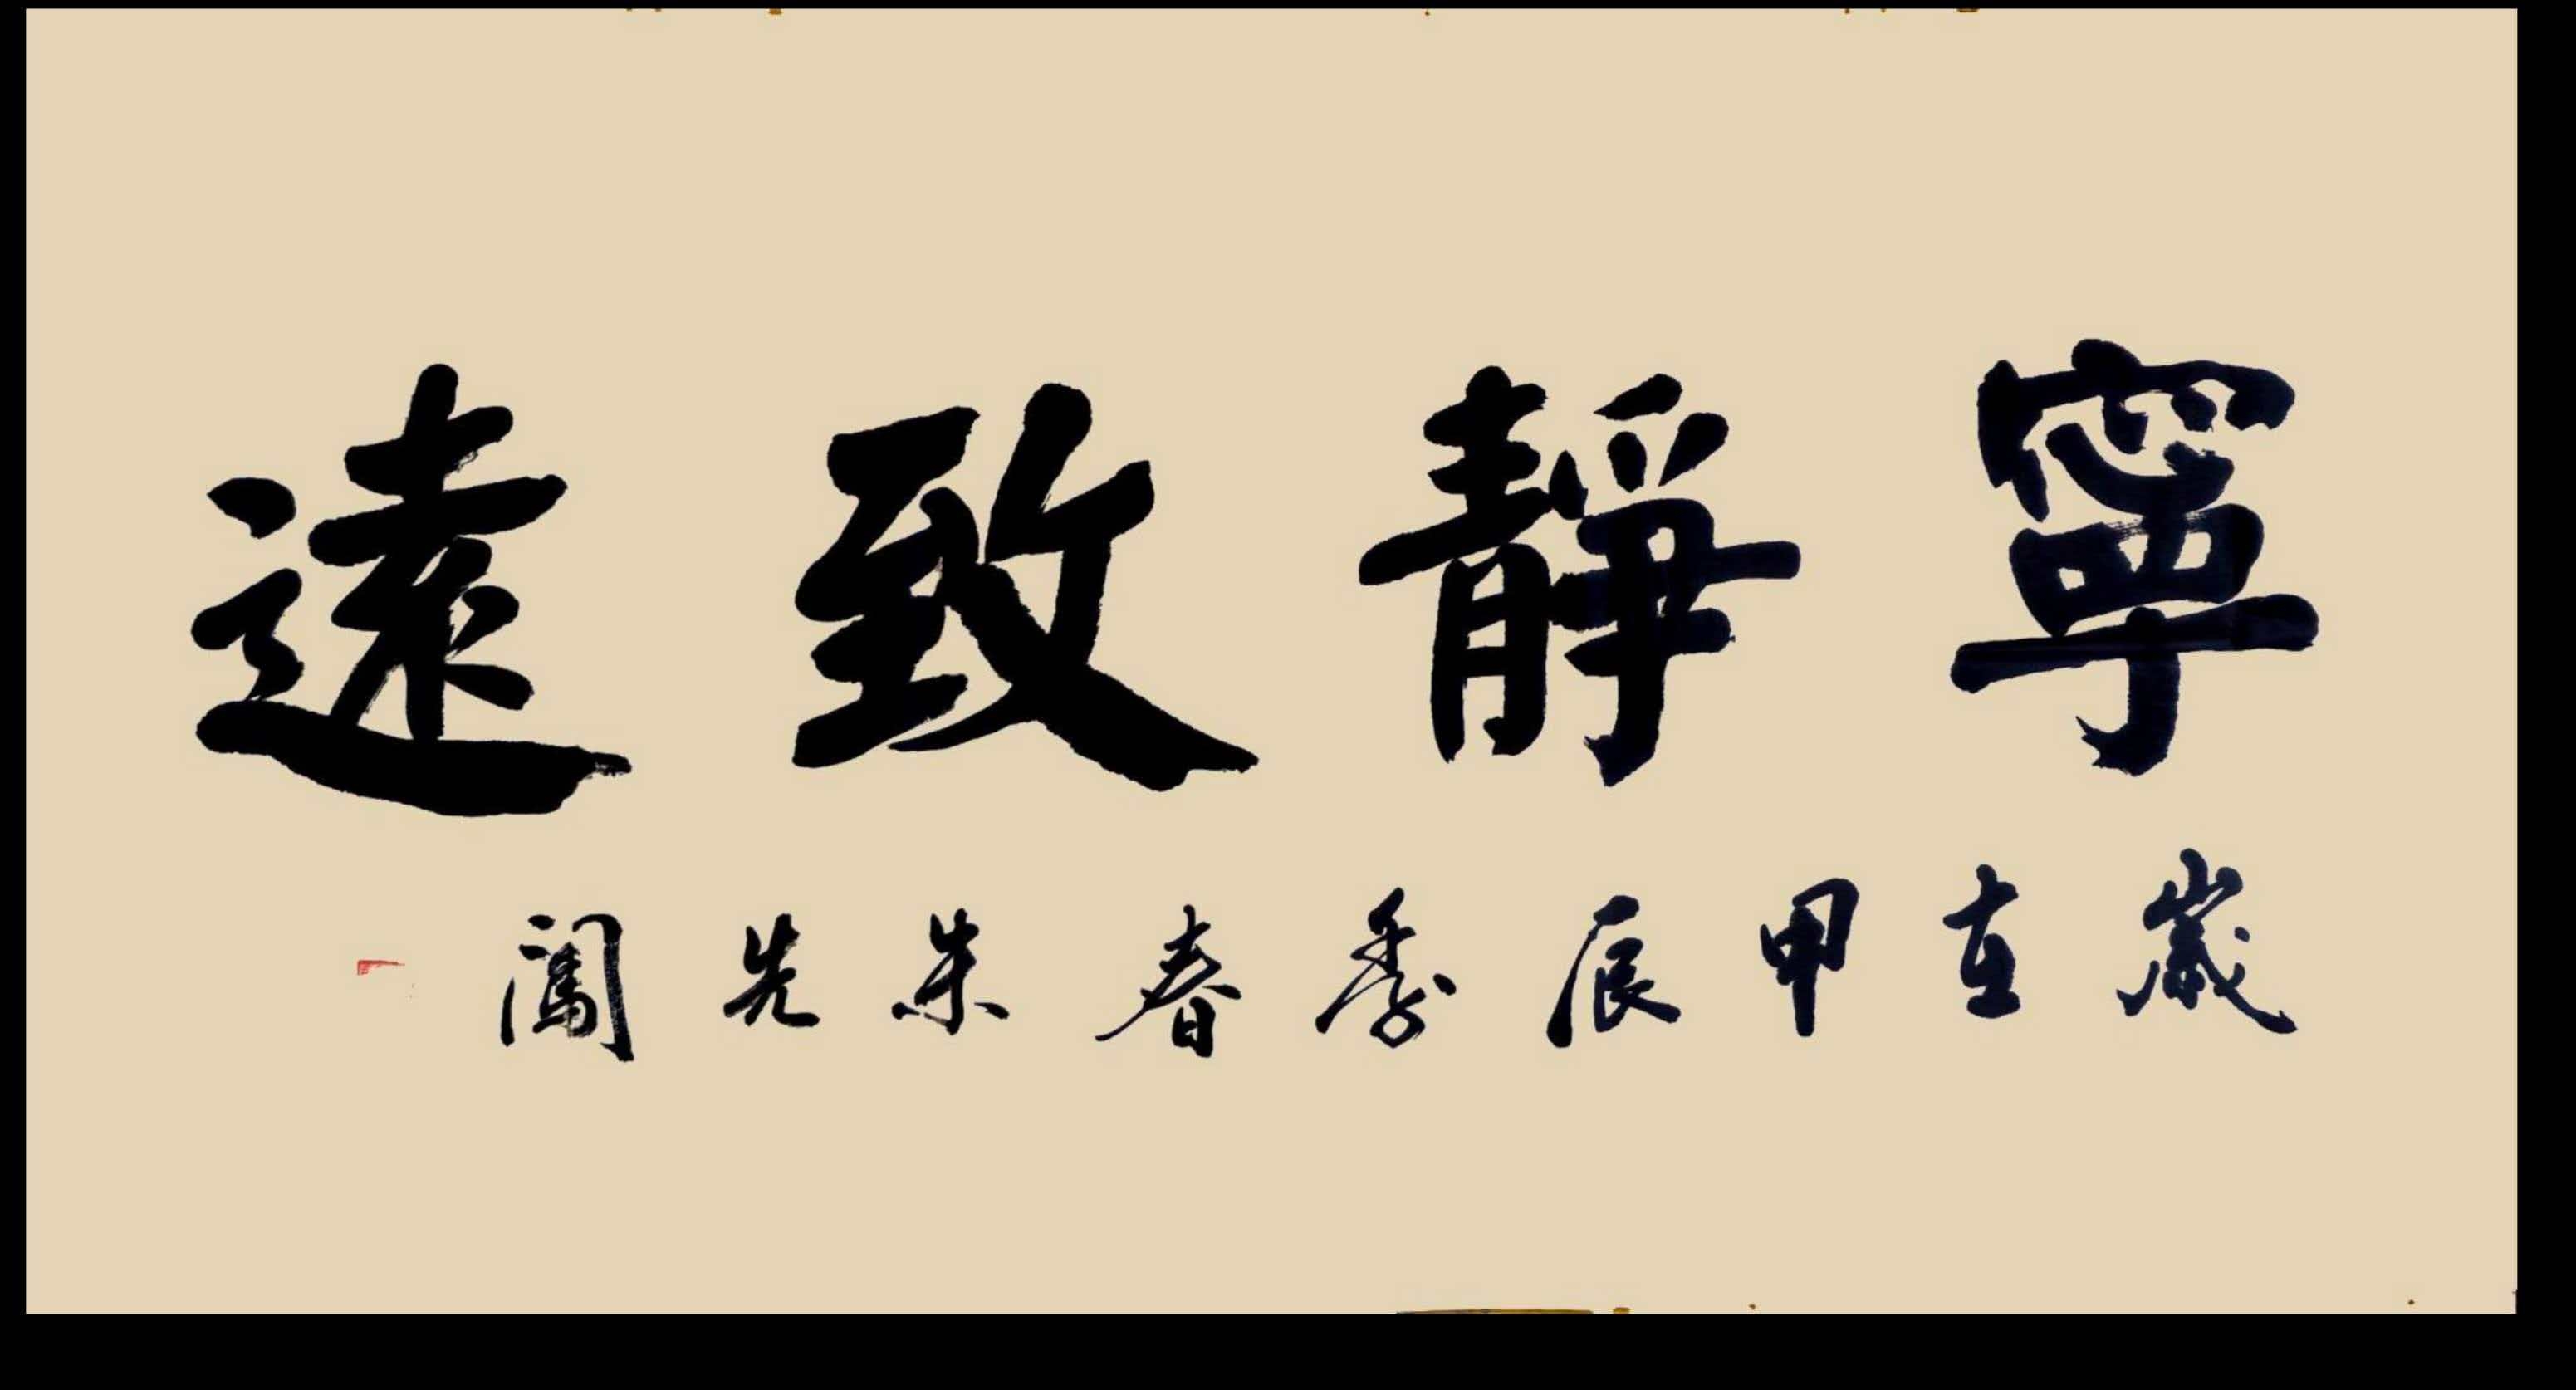 寧靜致遠
歲在甲辰季春朱先闖